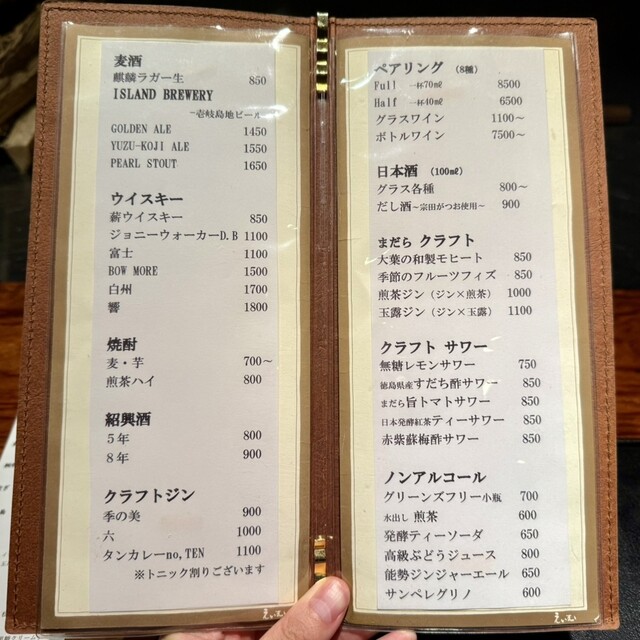 麦酒
麒麟ラガー生 850
ISLAND BREWERY
-壱岐島地ビール
GOLDEN ALE 1450
YUZU-KOJI ALE 1550
PEARL STOUT 1650
ウイスキー
薪ウイスキー 850
ジョニーウォーカーD.B 1100
富士 1100
BOW MORE 1500
白州 1700
響 1800
焼酎
麦・芋 700~
煎茶ハイ 800
紹興酒
5年 800
8年 900
クラフトジン
季の美 900
六 1000
タンカレーno,TEN 1100
※トニック割りございます
ペアリング (8種)
Full 一杯70㎖ 8500
Half 一杯40㎖ 6500
グラスワイン 1100~
ボトルワイン 7500~
日本酒 (100㎖)
グラス各種 800~
だし酒~宗田がつお使用~ 900
まだら クラフト
大葉の和製モヒート 850
季節のフルーツフィズ 850
煎茶ジン (ジン×煎茶) 1000
玉露ジン (ジン×玉露) 1100
クラフト サワー
無糖レモンサワー 750
徳島県産すだち酢サワー 850
まだら旨トマトサワー 850
日本発酵紅茶ティーサワー 850
赤紫蘇梅酢サワー 850
ノンアルコール
グリーンズフリー小瓶 700
水出し 煎茶 600
発酵ティーソーダ 650
高級ぶどうジュース 800
能勢ジンジャーエール 650
サンペレグリノ 600